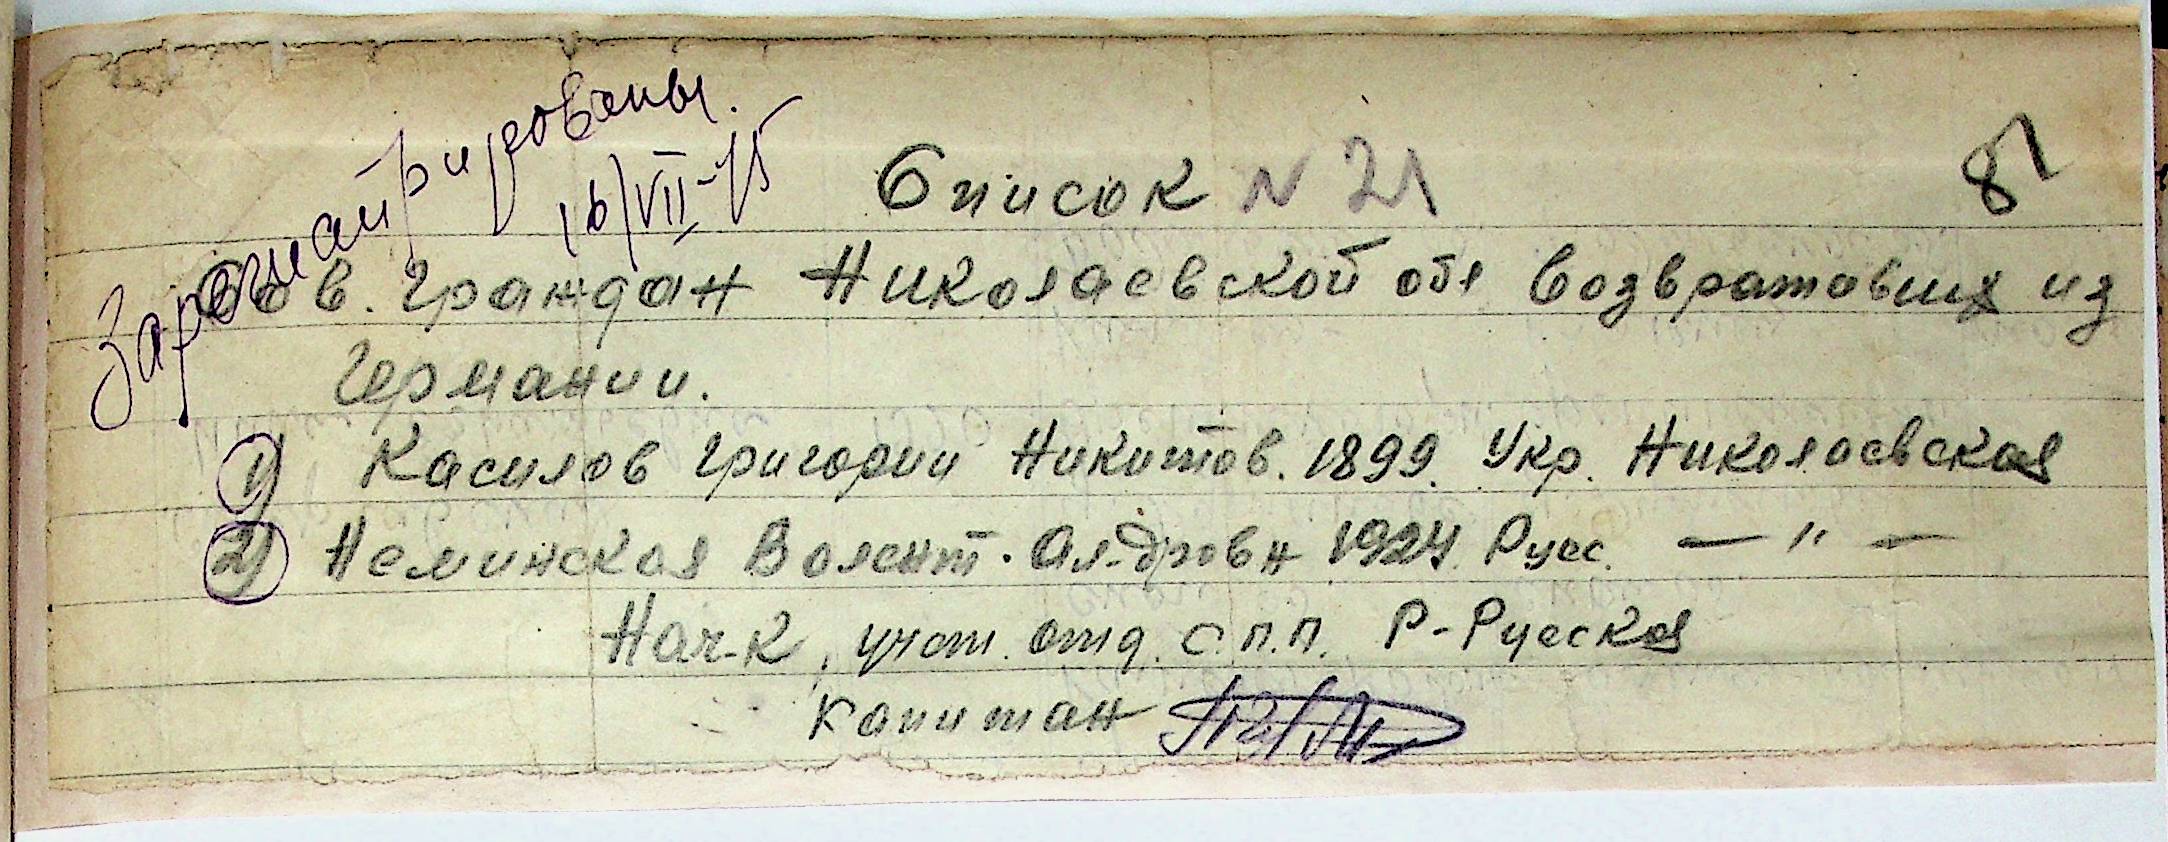 Зарегистрированы.
16/VII-45
87
Список N 21
Сов. Граждан Николаевской обл Возвратавших из
Германии.
1) Касилов Григории Никитов. 1899. Укр. Николаевская
2) Неминская Валент. Ал-дровн 1924. Русс. — " —
Нач-к, учет. отд. С.П.П. Р-Русская
Капитан